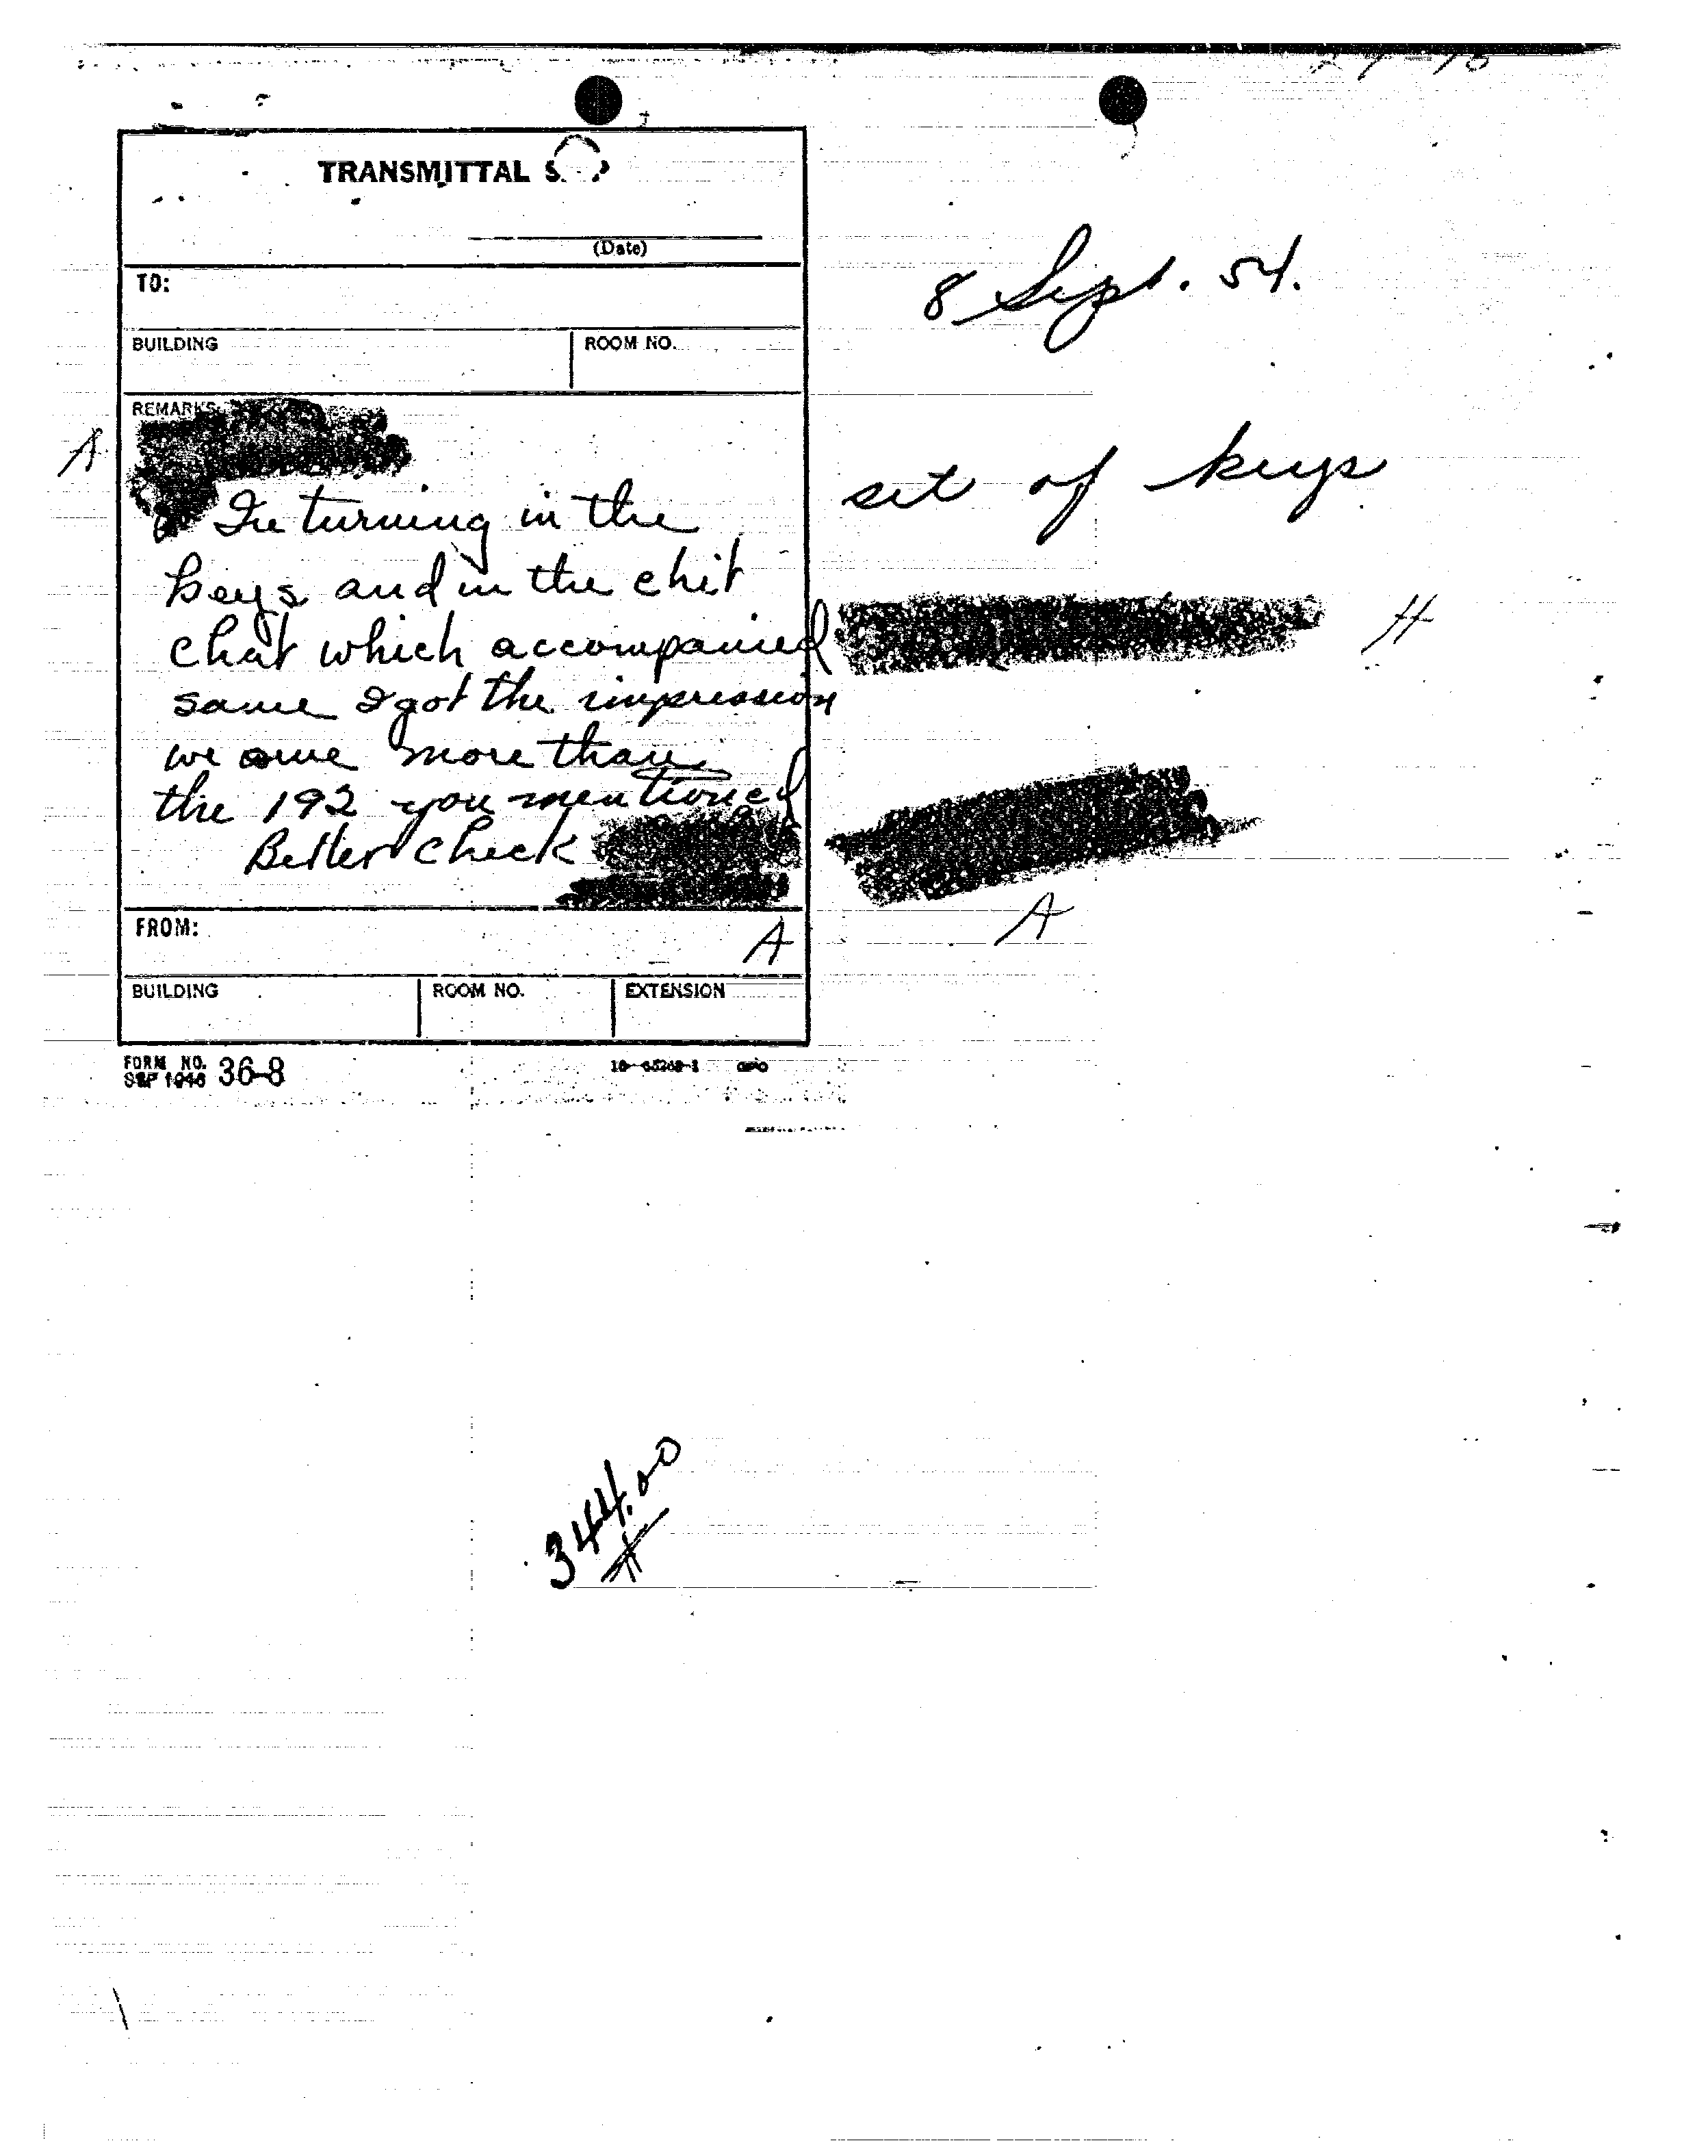 TRANSMITTAL
(Date)
TO:
BUILDING ROOM NO.
REMARKS:
A
In turning in the
keys and in the chit
chat which accompanied
same I got the impression
we owe more than
the 192 you mentioned
Better check
FROM:
A
BUILDING ROOM NO. EXTENSION
FORM NO. 36-8
SEP 1946
GPO
8 Sept. 54.
set of keys
H
A
344.00